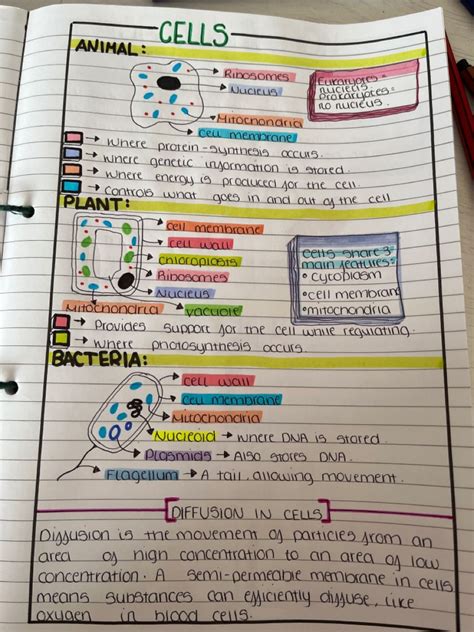 CELLS
ANIMAL:
Ribosomes
Nucleus
Mitochondria
cell membrane
Eukaryotes =
nucleus
Prokaryotes =
no nucleus.
→ Where protein-synthesis occurs.
→ where genetic information is stored.
→ Where energy is produced for the cell
→ Controls what goes in and out of the cell
PLANT:
cell membrane
cell wall
chloroplasts
Ribosomes
Nucleus
Mitochondria
vacuole
Cells share 3
main features:
• cytoplasm
• cell membrane
• mitochondria
→ Provides support for the cell while regulating.
→ where photosynthesis occurs.
BACTERIA:
cell wall
cell membrane
Mitochondria
Nucleoid → Where DNA is stored.
Plasmids → Also stores DNA.
Flagellum → A tail, allowing movement.
[DIFFUSION IN CELLS]
Diffusion is the movement of particles from an
area of high concentration to an area of low
concentration. A semi-permeable membrane in cells
means substances can efficiently diffuse, like
oxygen in blood cells.